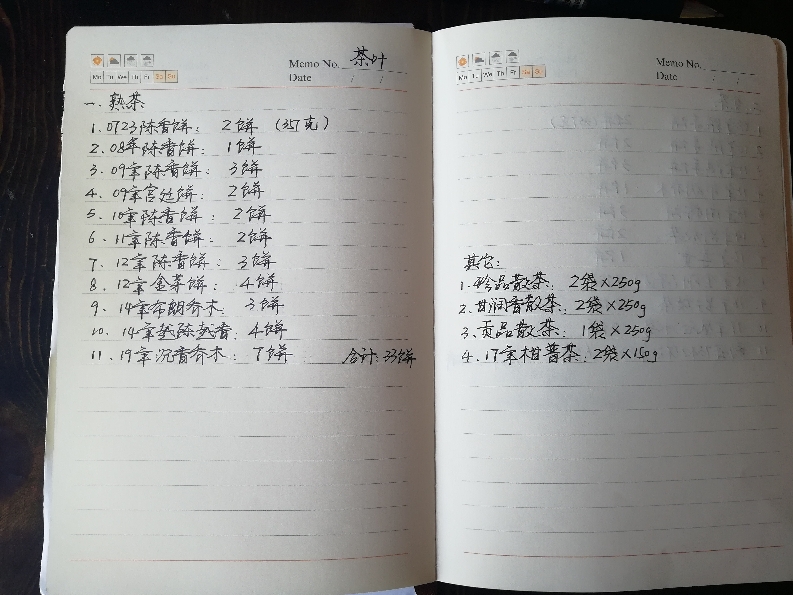 Memo No. 茶叶
Mo Tu We Th Fr Sa Su
Date / /
一、熟茶
1、0723陈香饼： 2饼 （357克）
2、08年陈香饼： 1饼
3、09年陈香饼： 3饼
4、09年宫廷饼： 2饼
5、10年陈香饼： 2饼
6、11年陈香饼： 2饼
7、12年陈香饼： 3饼
8、12年金芽饼： 4饼
9、14年布朗乔木： 3饼
10、14年越陈越香： 4饼
11、19年沉香乔木： 7饼 合计：33饼
Memo No.
Mo Tu We Th Fr Sa Su
Date / /
其它：
1、珍品散茶： 2袋×250g
2、甘润香散茶： 2袋×250g
3、贡品散茶： 1袋×250g
4、17年柑普茶： 2袋×150g